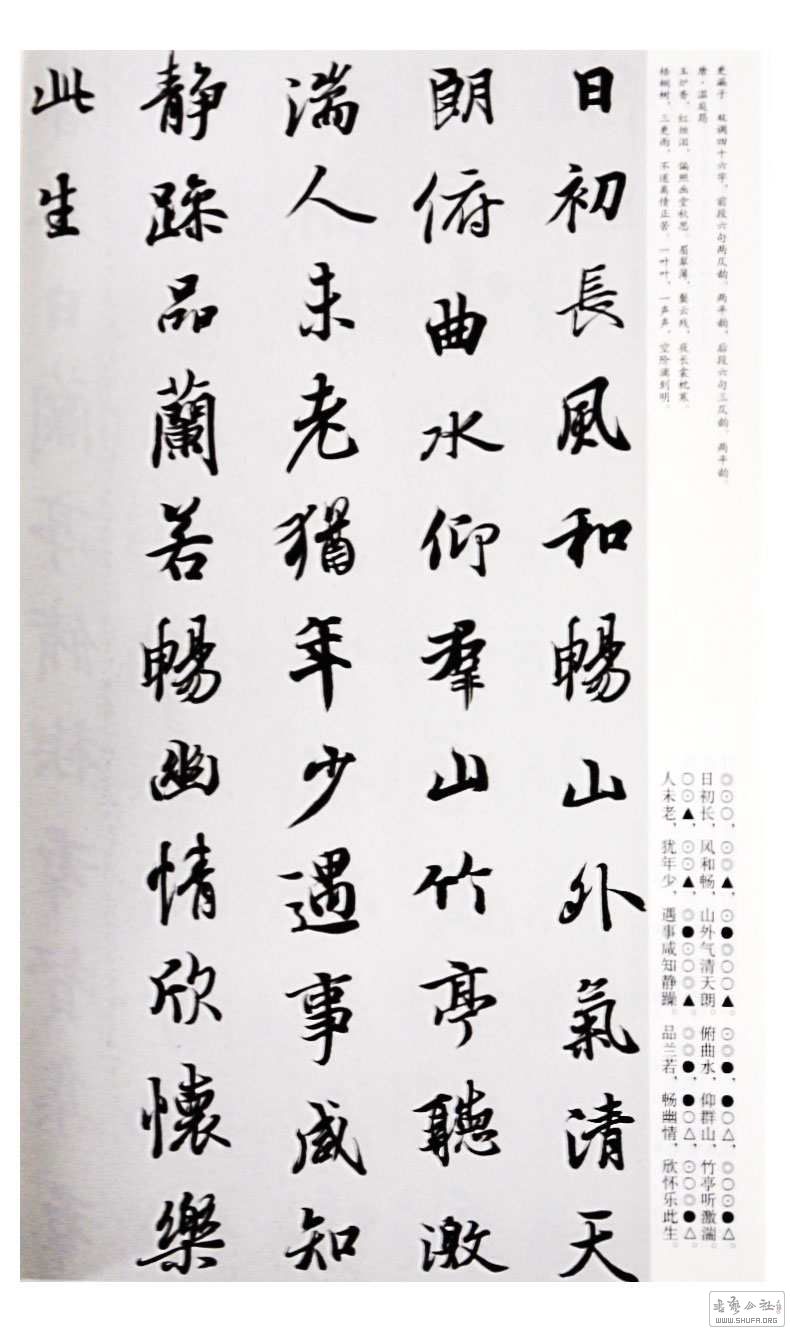 更漏子 双调四十六字，前段六句两仄韵、两平韵，后段六句三仄韵、两平韵。
唐·温庭筠
玉炉香，红烛泪，偏照画堂秋思。眉翠薄，鬓云残，夜长衾枕寒。
梧桐树，三更雨，不道离情正苦。一叶叶，一声声，空阶滴到明。
◎⊙○，⊙◎▲，⊙●◎○○▲。⊙◎●，●○△，◎○⊙●△。
日初长，风和畅，山外气清天朗。俯曲水，仰群山，竹亭听激湍。
○⊙▲，⊙⊙▲，◎●⊙○◎▲。◎◎●，●○△，⊙○◎●△。
人未老，犹年少，遇事咸知静躁。品兰若，畅幽情，欣怀乐此生。
日初長風和暢山外氣清天
朗俯曲水仰羣山竹亭聽激
湍人未老猶年少遇事咸知
静躁品蘭若暢幽情欣懷樂
此生
书艺公社
WWW.SHUFA.ORG